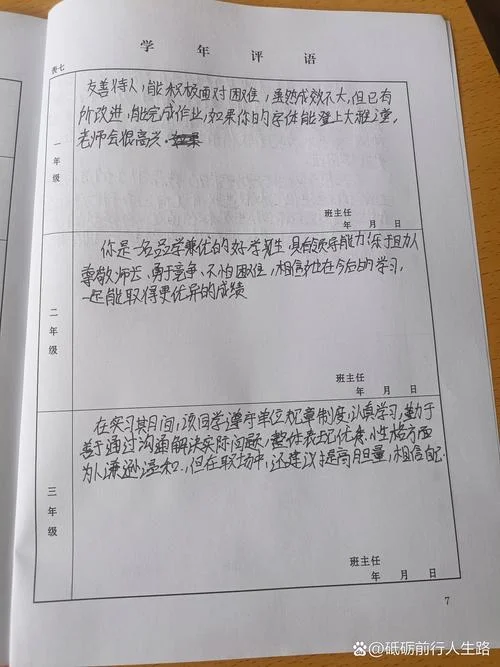 学年评语
表七
一年级
友善待人,能积极面对困难,虽然成效不大,但已有
所改进,能完成作业,如果你的字体能登上大雅之堂,
老师会很高兴.
班主任
年 月 日
二年级
你是一名品学兼优的好学生,具有领导能力,乐于助人
尊敬师长、勇于竞争、不怕困难,相信她在今后的学习,
一定能取得更优异的成绩
班主任
年 月 日
三年级
在实习其月间,该同学遵守单位规章制度,认真学习,勤于
善于通过沟通解决实际问题,整体表现优秀.性格方面
为人谦逊温和.,但在职场中,还建议提高胆量,相信自己.
班主任
年 月 日
7
砥砺前行人生路